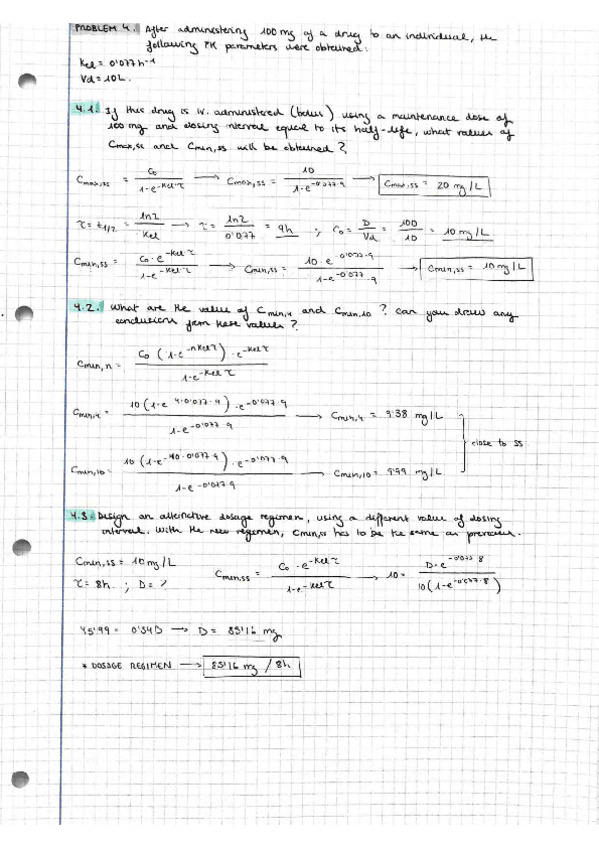 PROBLEM 4. After administering 100 mg of a drug to an individual, the
following PK parameters were obtained:
Kel = 0'077 h⁻¹
Vd = 10 L.
4.1. If this drug is iv. administered (bolus) using a maintenance dose of
100 mg and dosing interval equal to its half-life, what values of
Cmax,ss and Cmin,ss will be obtained?
Cmax,ss = C₀ / (1-e^(-Kel·τ)) → Cmax,ss = 10 / (1-e^(-0'077·9)) → Cmax,ss = 20 mg/L
τ = t1/2 = ln2 / Kel → τ = ln2 / 0'077 = 9h ; C₀ = D / Vd = 100 / 10 = 10 mg/L
Cmin,ss = C₀·e^(-Kel·τ) / (1-e^(-Kel·τ)) → Cmin,ss = 10·e^(-0'077·9) / (1-e^(-0'077·9)) → Cmin,ss = 10 mg/L
4.2. What are the value of Cmin,4 and Cmin,10? Can you draw any
conclusions from these values?
Cmin,n = C₀ (1-e^(-nKelτ))·e^(-Kelτ) / (1-e^(-Kelτ))
Cmin,4 = 10 (1-e^(4·0'077·9))·e^(-0'077·9) / (1-e^(-0'077·9)) → Cmin,4 = 9'38 mg/L
close to ss
Cmin,10 = 10 (1-e^(-10·0'077·9))·e^(-0'077·9) / (1-e^(-0'077·9)) → Cmin,10 = 9'99 mg/L
4.3. Design an alternative dosage regimen, using a different value of dosing
interval. With the new regimen, Cmin,ss has to be the same as previous.
Cmin,ss = 10 mg/L
τ = 8h ; D = ?
Cmin,ss = C₀·e^(-Kelτ) / (1-e^(-Kelτ)) → 10 = D·e^(-0'077·8) / 10(1-e^(-0'077·8))
45'99 = 0'54D → D = 85'16 mg
* DOSAGE REGIMEN → 85'16 mg / 8h